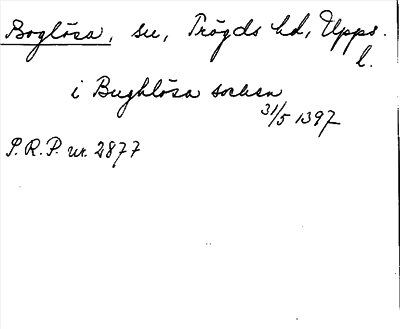 Boglösa, sn, Trögds hd, Upps.
l.
i Bughlösa socken
31/5 1397
P.R.P. nr. 2877